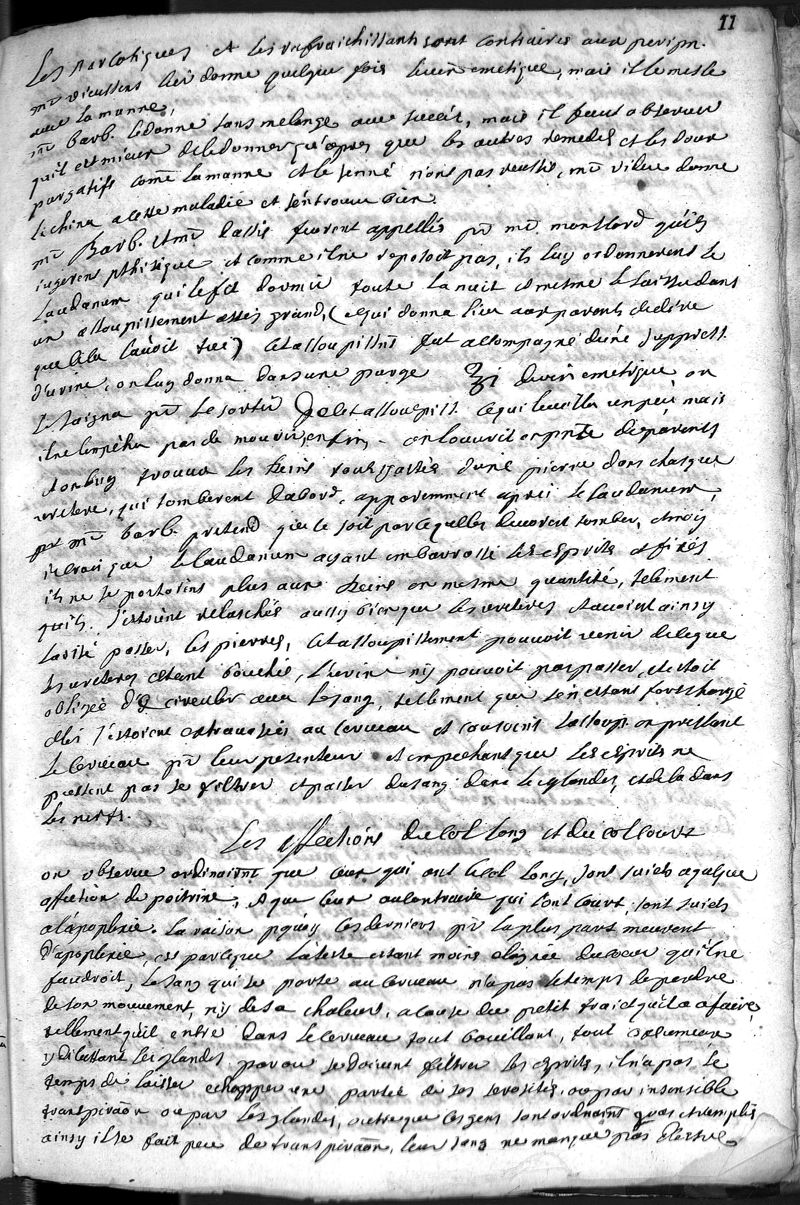 11
Les narcotiques et les rafraichissants sont contraires aux peripn.
mr vieussens leur donne quelque fois le vin emetique, mais il le mesle
avec la manne,
mr barb. le donne sans melange avec succés, mais il faut observer
qu'il est mieux de le donner qu'apres que les autres remedes et les doux
purgatifs come la manne et le senné n'ont pas reussi, mr donne
le china a cette maladie et s'en trouve bien.
mr Barb. et mr furent appellés pr mr. montford qu'ils
jugerent pthisique et comme il ne reposoit pas, ils luy ordonnerent le
laudanum qui le fit dormir toute la nuit et mesme le laissa dans
un assoupissement assés grand, (ce qui donna lieu aux parents de dire
que l'avoit tué) cet assoupissmt fut accompagné d'une suppress.
d'urine, on luy donna dans une purge ʒi de vin emetique on
le saigna pr le sortir de cet assoupiss. ce qui l'eveilla un peu mais
il ne l'empêcha pas de mourir, enfin on l'ouvrit en pñce des parents
et on luy trouva les reins tous gastés d'une pierre dans chasque
uretere, qui tomberent d'abord, apparemment apres le laudanum,
mr barb. pretend que ce soit par ce qu'elles devoient tomber, et moy
je croi que le laudanum ayant embarrassé les esprits et fixés
ils ne se portoient plus aux reins en mesme quantité, telement
qu'ils s'estoient relaschés aussy bien que les ureteres et avoient ainsy
laissé passer, les pierres, cet assoupissement pouvoit venir de ce que
les ureteres estant bouchés, l'urine n'y pouvoit pas passer, et estoit
obligée de circuler avec le sang, tellement que s'en estant fort chargé
elles s'estoient extravasées au cerveau et causoient l'assoup. en pressant
le cerveau pr leur pesenteur et empechant que les esprits ne
pussent pas se filtrer et passer du sang dans les glandes, et de la dans
les nerfs.
Les affections du col long et du col court
on observe ordinairmt que ceux qui ont le col long, sont sujets a quelque
affection de poitrine, et que ceux au contraire qui l'ont court, sont sujets
a l'apoplexie. la raison pquoy ces derniers pr la plus part meurent
d'apoplexie, est parceque la teste estant moins eloignée du coeur qu'il ne
faudroit, le sang qui se porte au cerveau n'a pas le temps de perdre
de son mouvement, ny de sa chaleur, a cause du petit traict qu'il a a faire,
tellement qu'il entre dans le cerveau tout bouillant, tout
les glandes par ou se doivent filtrer les esprits, il n'a pas le
temps de laisser echapper une partie de ses serosités, ou par insensible
transpiraõn ou par les glandes, outre que ces gens sont ordnairmt gras et remplis
ainsy il se fait peu de transpiraõn, leur sang ne manque pas d'estre